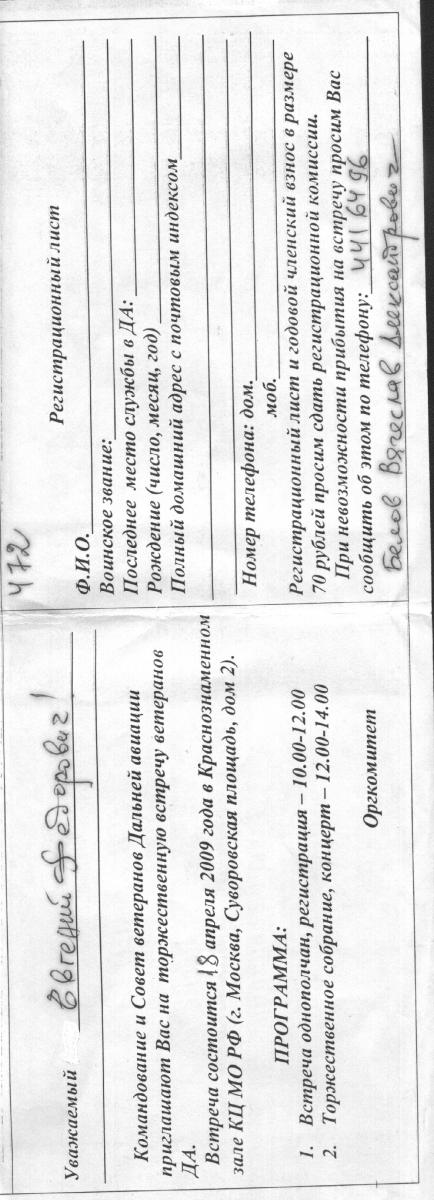 Уважаемый Евгений Федорович!
Командование и Совет ветеранов Дальней авиации
приглашают Вас на торжественную встречу ветеранов
ДА.
Встреча состоится 18 апреля 2009 года в Краснознаменном
зале КЦ МО РФ (г. Москва, Суворовская площадь, дом 2).
ПРОГРАММА:
1. Встреча однополчан, регистрация – 10.00-12.00
2. Торжественное собрание, концерт – 12.00-14.00
Оргкомитет
472
Регистрационный лист
Ф.И.О.
Воинское звание:
Последнее место службы в ДА:
Рождение (число, месяц, год)
Полный домашний адрес с почтовым индексом
Номер телефона: дом.
моб.
Регистрационный лист и годовой членский взнос в размере
70 рублей просим сдать регистрационной комиссии.
При невозможности прибытия на встречу просим Вас
сообщить об этом по телефону: 441 64 96
Белов Вячеслав Александрович